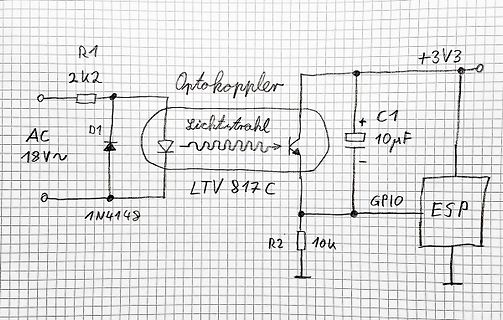 R1
2k2
Optokoppler
+3V3
Lichtstrahl
C1
+
10µF
-
AC
18V~
D1
1N4148
LTV 817C
GPIO
ESP
R2
10k